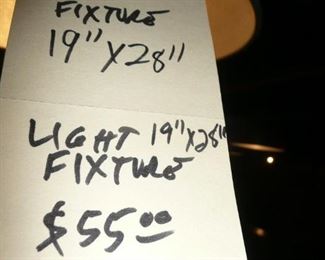 FIXTURE
19" X 28"
LIGHT 19" X 28"
FIXTURE
$55.00